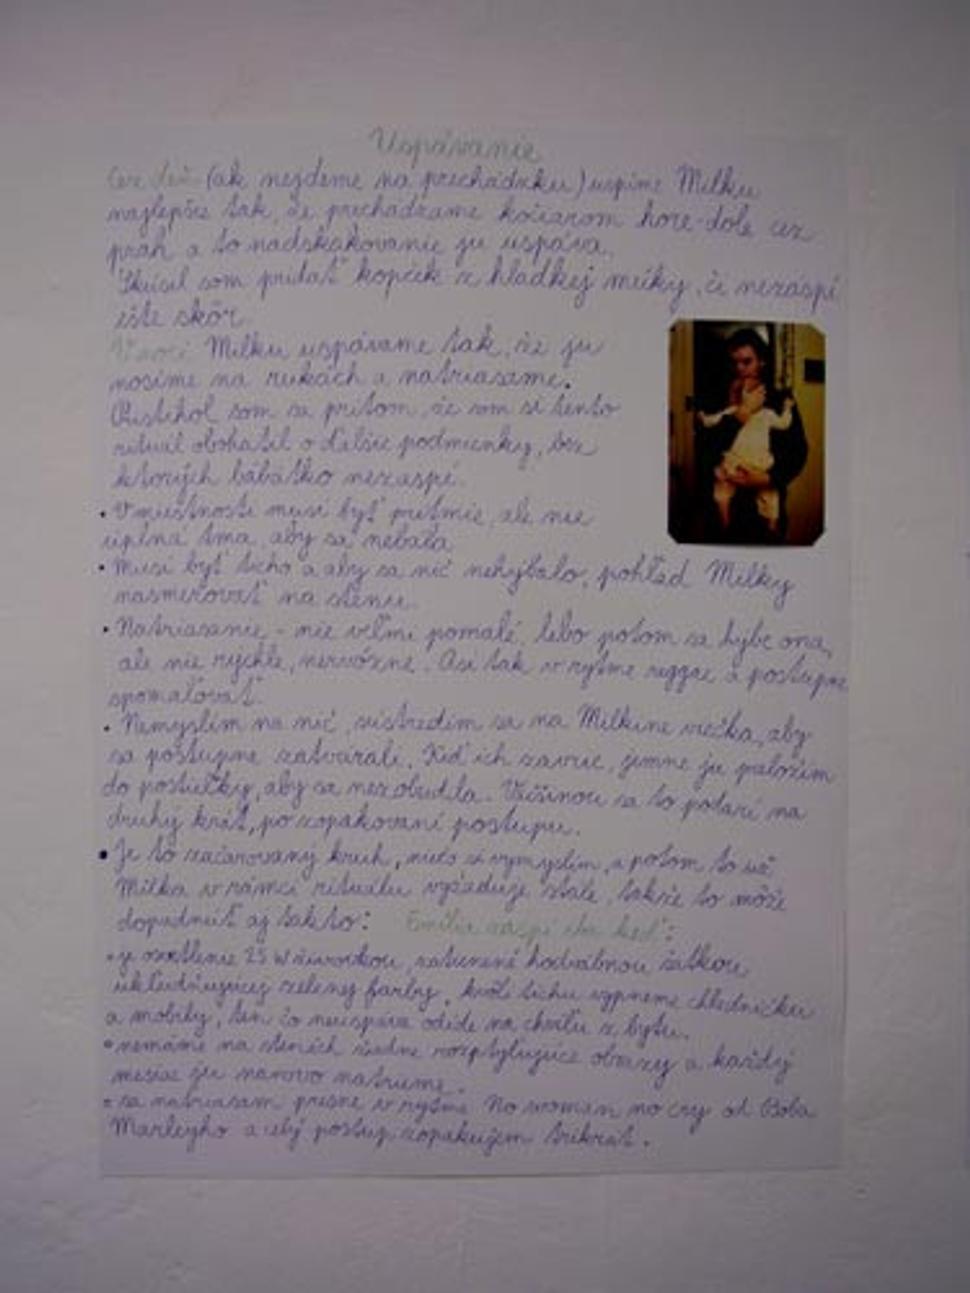 Uspávanie
Cez deň (ak nejdeme na prechádzku) uspíme Milku
najlepšie tak, že prechádzame kočiarom hore-dole cez
prah a to nadskakovanie ju uspáva.
Skúsil som pridať kopček z hladkej múky, či nezaspí
ešte skôr.
V noci Milku uspávame tak, že ju
nosíme na rukách a natriasame.
Pristihol som sa pritom, že som si tento
rituál obohatil o ďalšie podmienky, bez
ktorých bábätko nezaspí.
• V miestnosti musí byť prítmie, ale nie
úplná tma, aby sa nebála
• Musí byť ticho a aby sa nič nehýbalo, pohľad Milky
nasmerovať na stenu.
• Natriasanie - nie veľmi pomalé, lebo potom sa hýbe ona,
ale nie rýchle, nervózne. Asi tak v rytme reggae a postupne
spomaľovať.
• Nemyslím na nič, sústredím sa na Milkine viečka, aby
sa postupne zatvárali. Keď ich zavrie, jemne ju položím
do postieľky, aby sa nezobudila. Väčšinou sa to podarí na
druhý krát, po zopakovaní postupu.
• Je to začarovaný kruh, niečo si vymyslím, a potom to už
Milka v rámci rituálu vyžaduje stále, takže to môže
dopadnúť aj takto: Emília zaspí iba keď:
• je osvetlenie 25 W žiarovkou, zatienené hodvábnou šatkou
ukľudňujúcej zelenej farby, kvôli tichu vypneme chladničku
a mobily, ten čo neuspáva odíde na chvíľu z bytu.
• nemáme na stenách žiadne rozptyľujúce obrazy a každý
mesiac ju nanovo natrieme.
• sa natriasam presne v rytme No woman no cry od Boba
Marleyho a celý postup zopakujem trikrát.